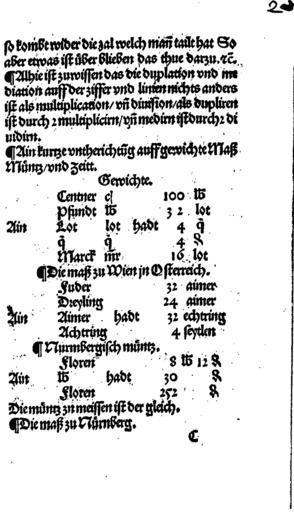 so kombt wider die zal welch man̄ tailt hat So
aber etwas ist über blieben das thue darzu. ꝛc̄.
¶ Alhie ist zuwissen das die duplation vnd me
diation auff der ziffer vnd linien nichts anders
ist als multiplication/ vn̄ diuision/als dupliren
ist durch 2 multiplicirn/ vn̄ medirn ist durch 2 di
uidirn.
¶ Ain kurtze vntherichtūg auff gewichte Maß
Müntz/vnd Zeitt.
Gewichte.
Centner 100 ℔
Pfundt ℔ 32 lot
Ain Lot lot hadt 4 q̄
q̄ q̄ 4 ₰
Marck mr 16 lot
¶ Die maß zu Wien in Osterreich.
Fuder 32 aimer
Dreyling 24 aimer
Ain Aimer hadt 32 echtring
Achtring 4 seytlen
¶ Nurmbergisch müntz.
Floren 8 ℔ 12 ₰
Ain ℔ hadt 30 ₰
Floren 252 ₰
Die müntz zu meissen ist der gleich.
¶ Die maß zu Nürnberg.
C